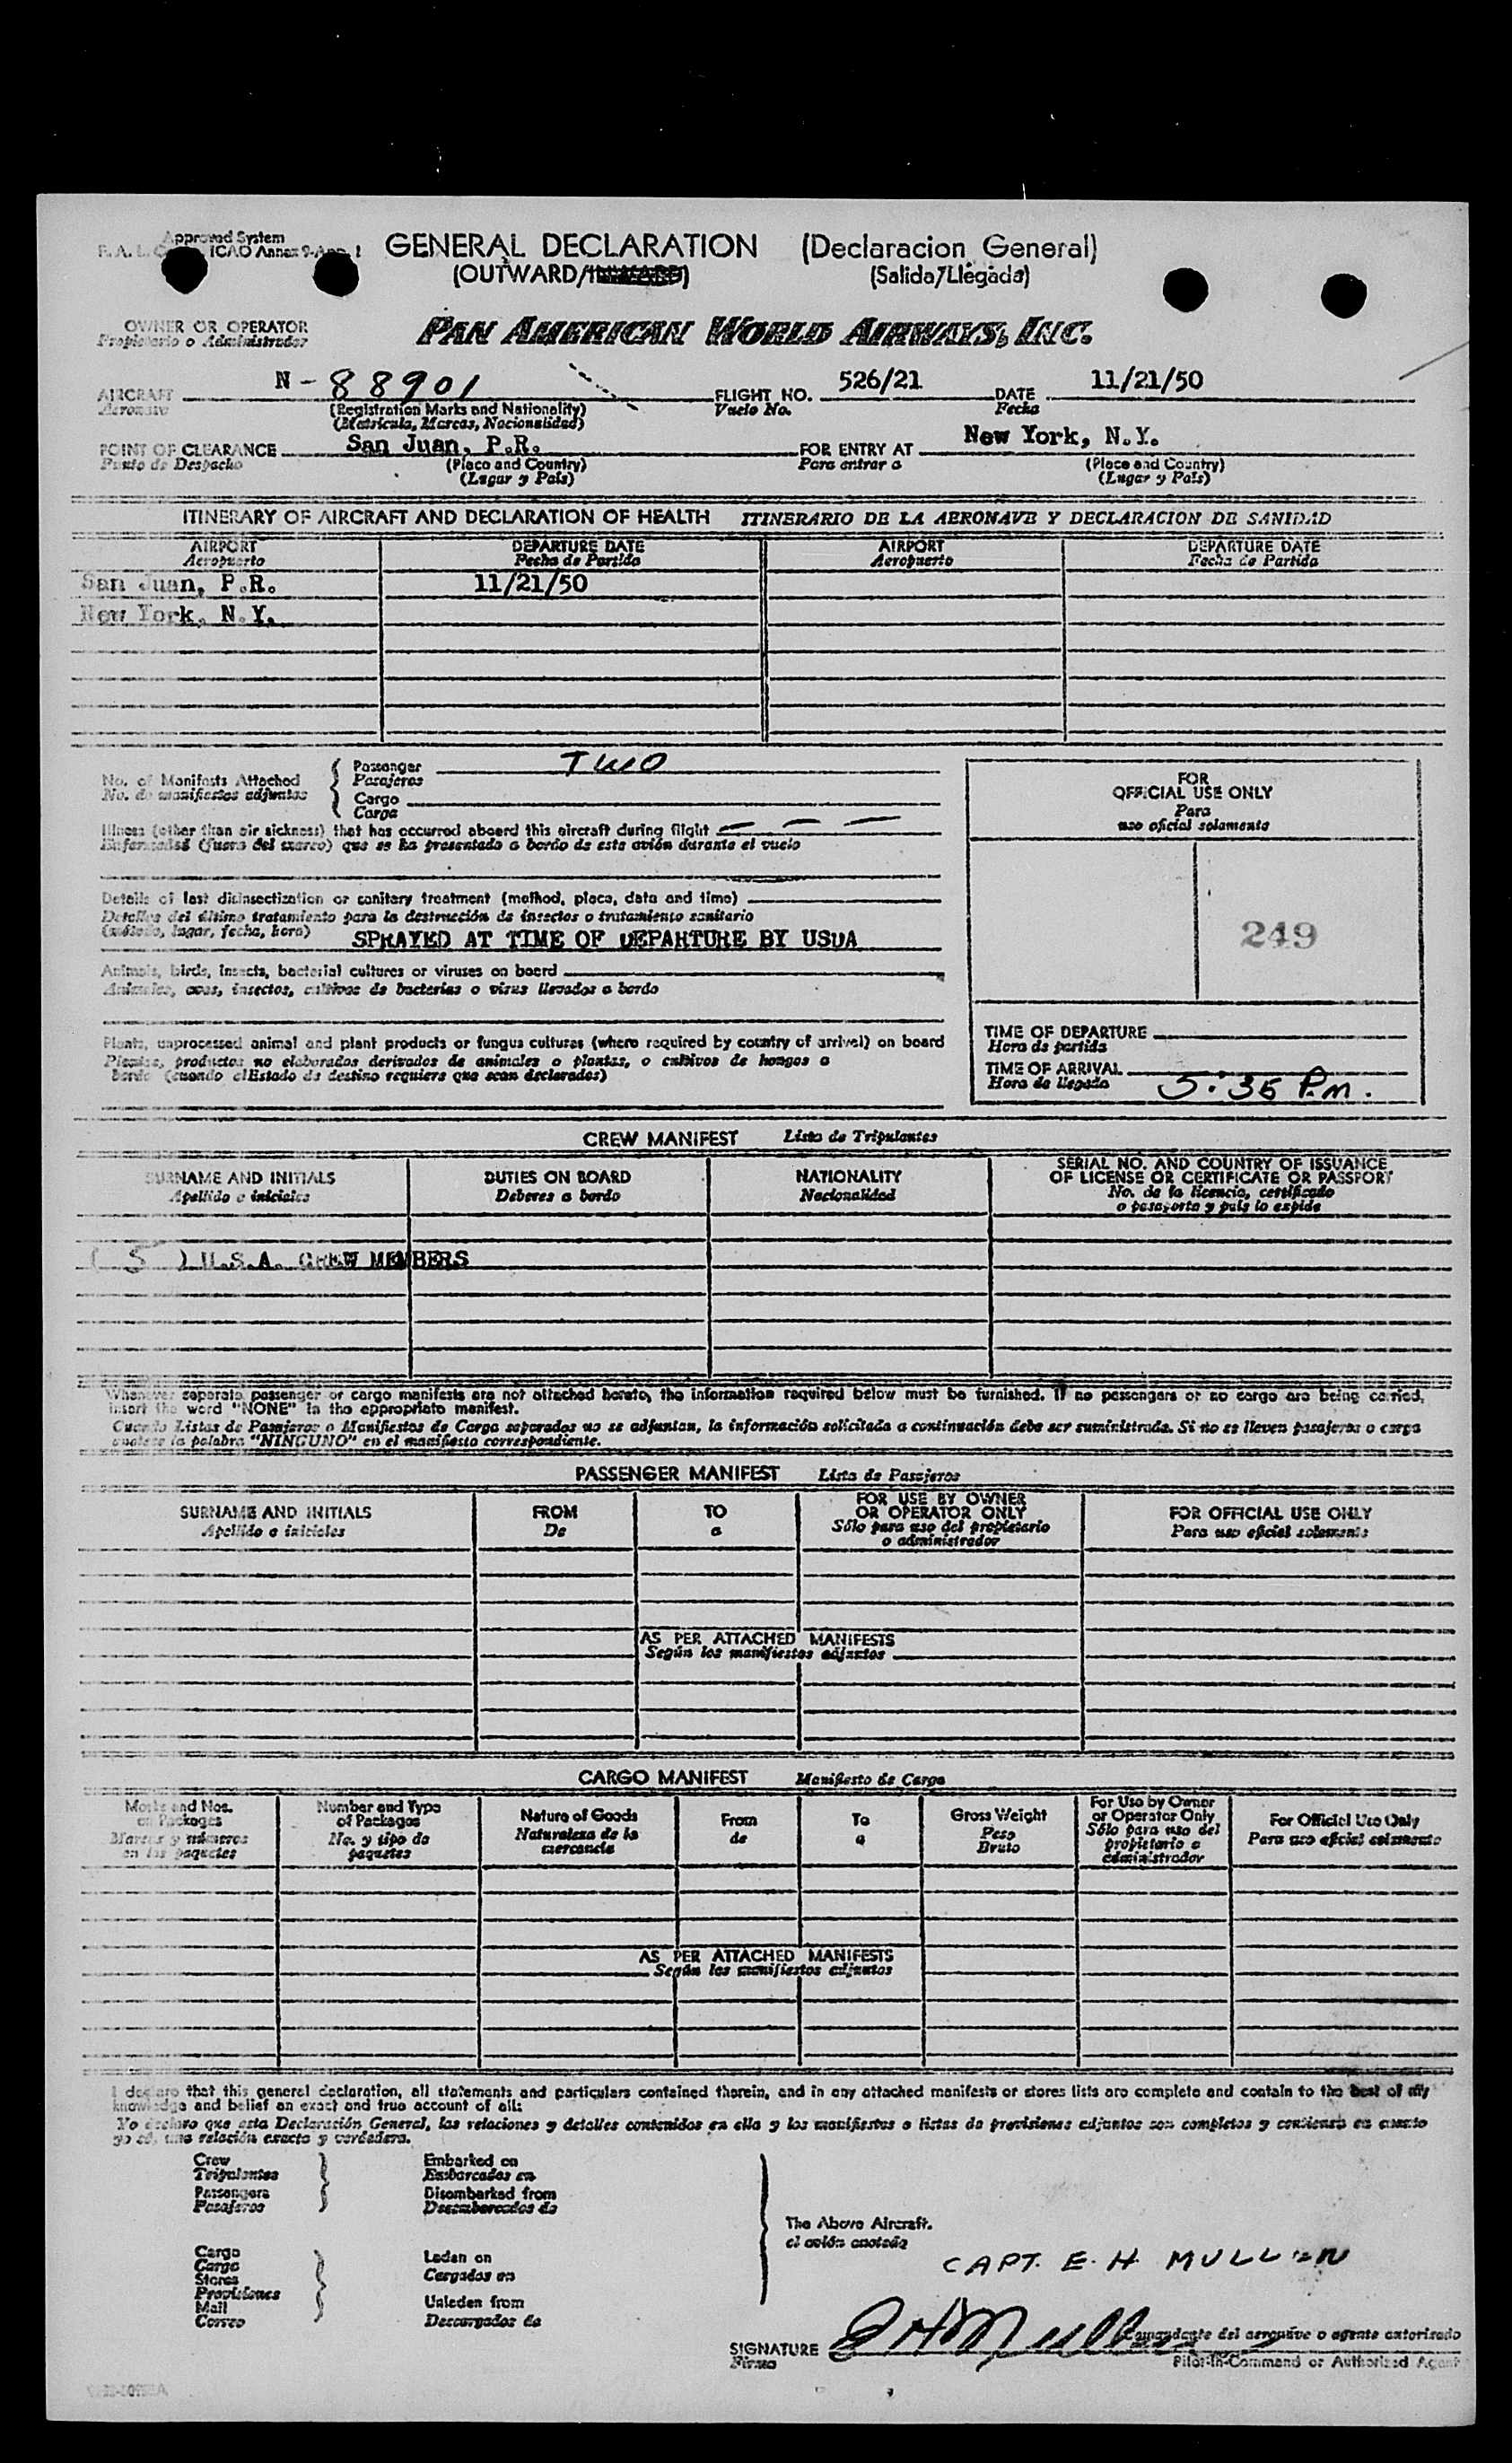 Approved System
F. A. L. ICAO Annex 9-App. 1
GENERAL DECLARATION (Declaracion General)
(OUTWARD/INWARD) (Salida/Llegada)
OWNER OR OPERATOR
Propietario o Administrador
PAN AMERICAN WORLD AIRWAYS, INC.
AIRCRAFT N-88901 FLIGHT NO. 526/21 DATE 11/21/50
Aeronave (Registration Marks and Nationality) Vuelo No. Fecha
(Matricula, Marcas, Nacionalidad)
POINT OF CLEARANCE San Juan, P.R. FOR ENTRY AT New York, N.Y.
Punto de Despacho (Place and Country) Para entrar a (Place and Country)
(Lugar y País) (Lugar y País)
ITINERARY OF AIRCRAFT AND DECLARATION OF HEALTH ITINERARIO DE LA AERONAVE Y DECLARACION DE SANIDAD
AIRPORT DEPARTURE DATE AIRPORT DEPARTURE DATE
Aeropuerto Fecha de Partida Aeropuerto Fecha de Partida
San Juan, P.R. 11/21/50
New York, N.Y.
No. of Manifests Attached
No. de manifiestos adjuntos
Passenger TWO
Pasajeros
Cargo
Carga
Illness (other than air sickness) that has occurred aboard this aircraft during flight — — —
Enfermedad (fuera del mareo) que se ha presentado a bordo de este avión durante el vuelo
Details of last disinsectization or sanitary treatment (method, place, date and time)
Detalles del último tratamiento para la destrucción de insectos o tratamiento sanitario
(método, lugar, fecha, hora) SPRAYED AT TIME OF DEPARTURE BY USDA
Animals, birds, insects, bacterial cultures or viruses on board
Animales, aves, insectos, cultivos de bacterias o virus llevados a bordo
Plants, unprocessed animal and plant products or fungus cultures (where required by country of arrival) on board
Plantas, productos no elaborados derivados de animales o plantas, o cultivos de hongos a
bordo (cuando el Estado de destino requiera que sean declarados)
FOR
OFFICIAL USE ONLY
Para
uso oficial solamente
249
TIME OF DEPARTURE
Hora de partida
TIME OF ARRIVAL 5:35 P.m.
Hora de llegada
CREW MANIFEST Lista de Tripulantes
SURNAME AND INITIALS DUTIES ON BOARD NATIONALITY SERIAL NO. AND COUNTRY OF ISSUANCE
Apellido e iniciales Deberes a bordo Nacionalidad OF LICENSE OR CERTIFICATE OR PASSPORT
No. de la licencia, certificado
o pasaporte y país lo expide
( 5 ) U.S.A. CREW MEMBERS
Whenever separate passenger or cargo manifests are not attached hereto, the information required below must be furnished. If no passengers or no cargo are being carried,
insert the word "NONE" in the appropriate manifest.
Cuando Listas de Pasajeros o Manifiestos de Carga separados no se adjuntan, la información solicitada a continuación debe ser suministrada. Si no se lleven pasajeros o carga
anótese la palabra "NINGUNO" en el manifiesto correspondiente.
PASSENGER MANIFEST Lista de Pasajeros
SURNAME AND INITIALS FROM TO FOR USE BY OWNER FOR OFFICIAL USE ONLY
Apellido e iniciales De a OR OPERATOR ONLY Para uso oficial solamente
Sólo para uso del propietario
o administrador
AS PER ATTACHED MANIFESTS
Según los manifiestos adjuntos
CARGO MANIFEST Manifiesto de Carga
Marks and Nos.
on Packages
Marcas y números
en los paquetes
Number and Type
of Packages
No. y tipo de
paquetes
Nature of Goods
Naturaleza de la
mercancía
From
de
To
a
Gross Weight
Peso
Bruto
For Use by Owner
or Operator Only
Sólo para uso del
propietario o
administrador
For Official Use Only
Para uso oficial solamente
AS PER ATTACHED MANIFESTS
Según los manifiestos adjuntos
I declare that this general declaration, all statements and particulars contained therein, and in any attached manifests or stores lists are complete and contain to the best of my
knowledge and belief an exact and true account of all:
Yo declaro que esta Declaración General, las relaciones y detalles contenidos en ella y los manifiestos o listas de provisiones adjuntos son completos y contienen en cuanto
yo sé, una relación exacta y verdadera.
Crew
Tripulantes
Passengers
Pasajeros
Embarked on
Embarcados en
Disembarked from
Desembarcados de
Cargo
Carga
Stores
Provisiones
Mail
Correo
Laden on
Cargados en
Unladen from
Descargados de
The Above Aircraft.
el avión anotado
CAPT. E. H. MULLEN
SIGNATURE E H Mullen
Firma
Comandante del aeronave o agente autorizado
Pilot-in-Command or Authorized Agent